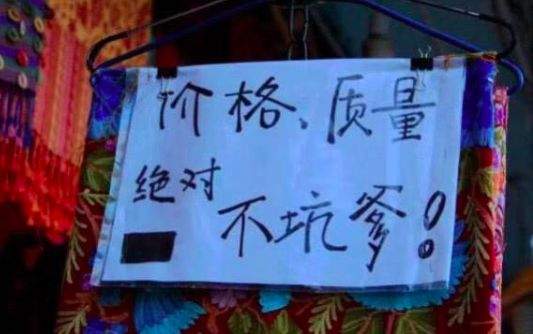 价格、质量
绝对
不坑爹！